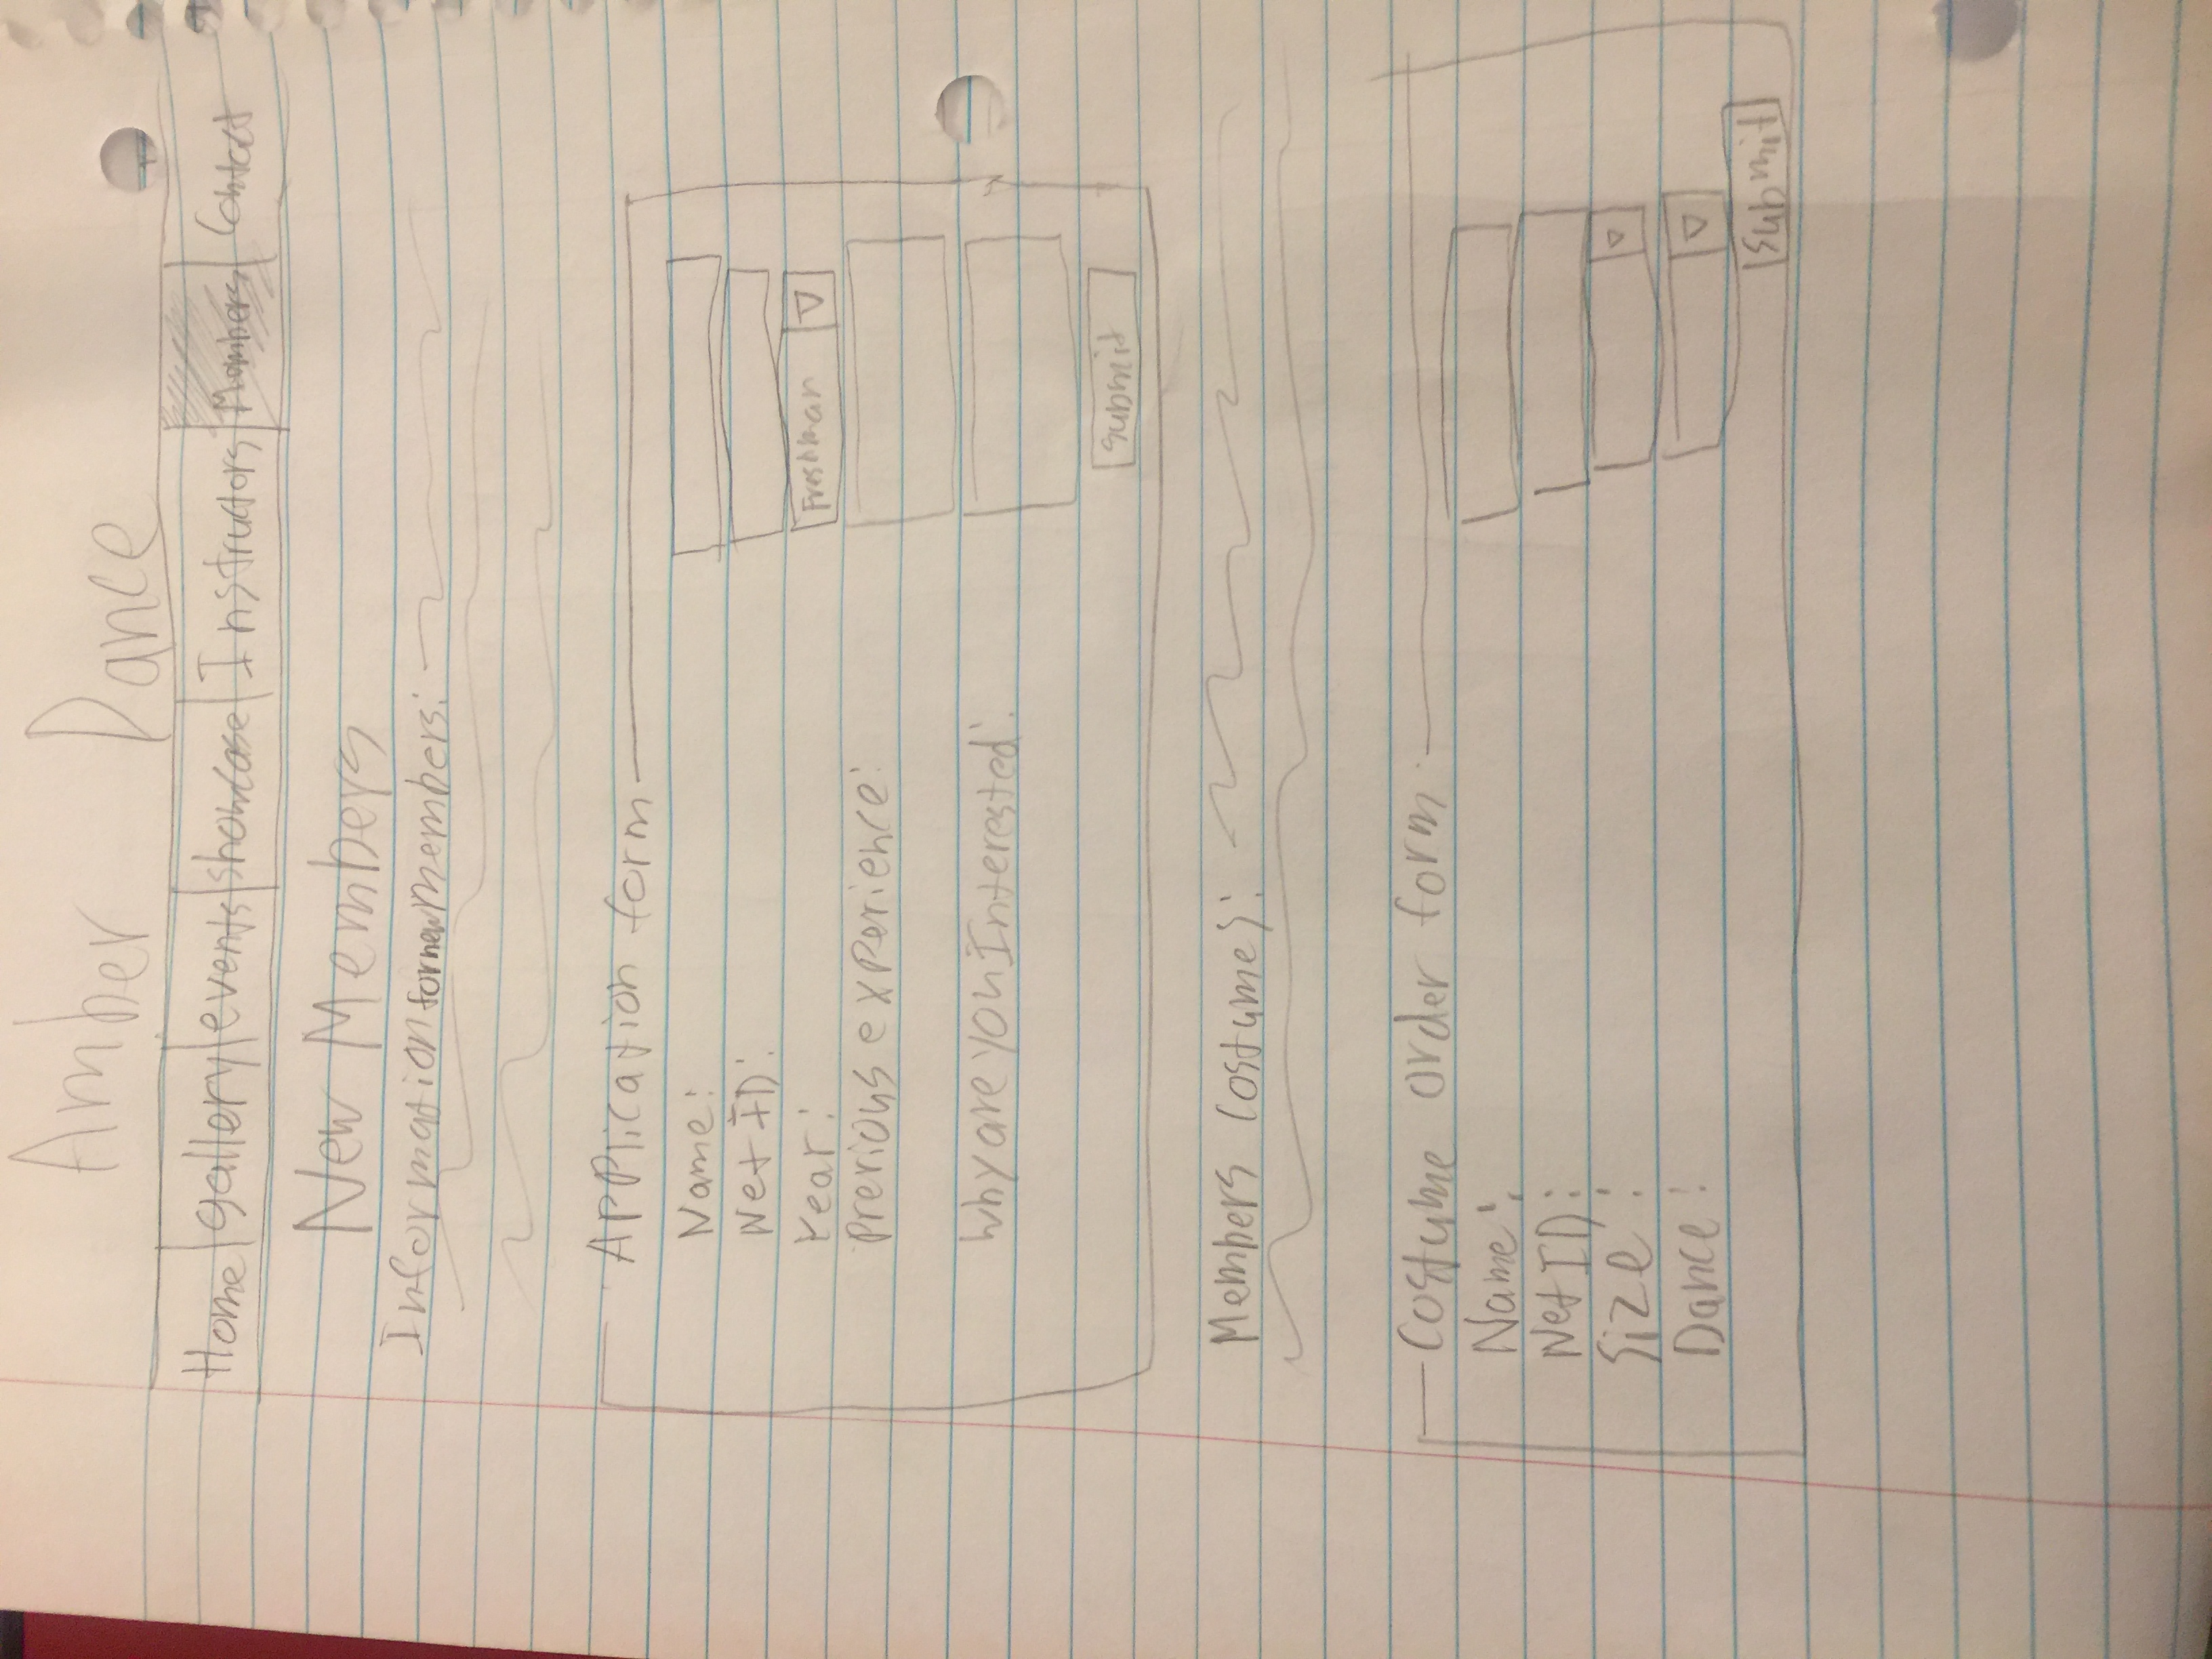 Amber Dance
Home gallery events showcase Instructors Members Contact
New Members
Information for new members:
Application form
Name:
Net ID:
Year: Freshman
Previous experience:
Why are you Interested:
submit
Members Costumes:
Costume order form
Name:
Net ID:
Size:
Dance:
submit